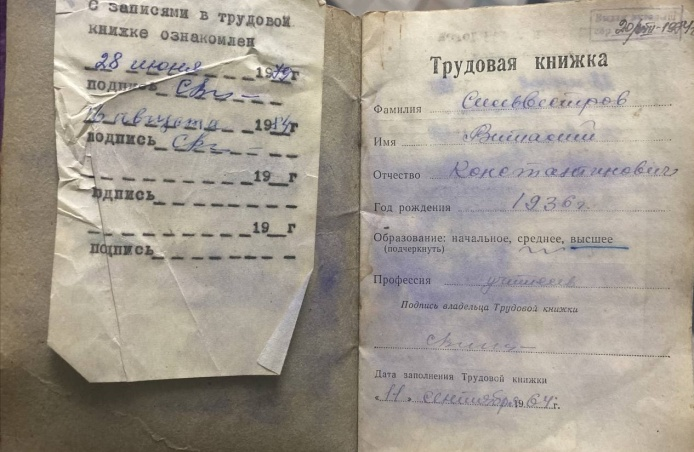 С записями в трудовой
книжке ознакомлен
28 июня 19 г
подпись
16 августа 19 г
подпись
19 г
подпись
19 г
подпись
20/VIII-19
Трудовая книжка
Фамилия Сильвестров
Имя Виталий
Отчество Константинович
Год рождения 1936 г.
Образование: начальное, среднее, высшее
(подчеркнуть)
Профессия учитель
Подпись владельца Трудовой книжки
Дата заполнения Трудовой книжки
"11" сентября 1964 г.